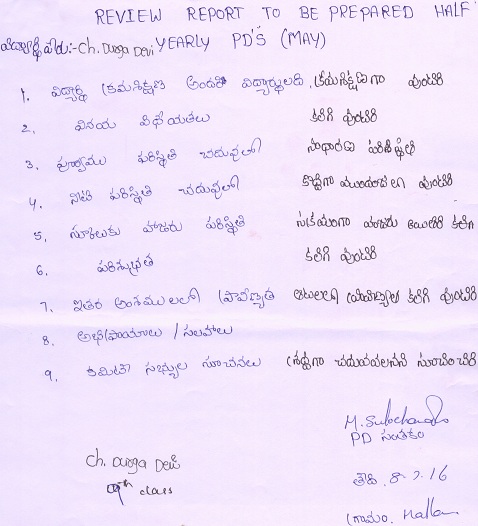 REVIEW REPORT TO BE PREPARED HALF
విద్యార్థి పేరు:- Ch. Durga Devi YEARLY PD'S (MAY)
1. విద్యార్థి క్రమశిక్షణ అందరి విద్యార్థులది క్రమశిక్షణగా వుంటిరి
2. వినయ విధేయతలు కలిగి వుంటిరి
3. పూర్వము పరిస్థితి చదువులో సాధారణ పరిస్థితి
4. నేటి పరిస్థితి చదువులో కొద్దిగా వుంటిరి
5. స్కూలుకు హాజరు పరిస్థితి సక్రమంగా హాజరు కలిగి
6. పరిశుభ్రత కలిగి వుంటిరి
7. ఇతర అంశములలో ప్రావీణ్యత ఆటలలో కలిగి వుంటిరి
8. అభిప్రాయాలు / సలహాలు
9. కమిటీ సభ్యుల సూచనలు శ్రద్ధగా చదువవలసినది సూచించిరి
PD సంతకం
Ch. Durga Devi
9th class
తేది. 8-7-16
గ్రామం. Nalla